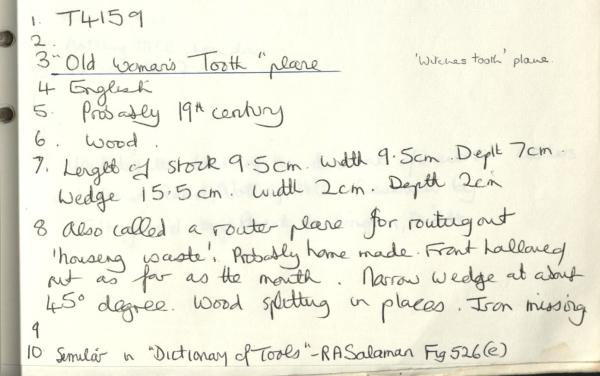 1. T4159
2.
3 "Old Woman's Tooth" plane 'Witches tooth' plane.
4 English
5. Probably 19th century
6. Wood.
7. Length of stock 9.5cm. Width 9.5cm. Depth 7cm.
Wedge 15.5cm. Width 2cm. Depth 2cm
8 Also called a router plane for routing out
'housing waste'. Probably home made. Front hallowed
out as far as the mouth. Narrow wedge at about
45° degree. Wood splitting in places. Iron missing
9
10 Similar in "Dictionary of Tools" - RA Salaman Fig 526(e)